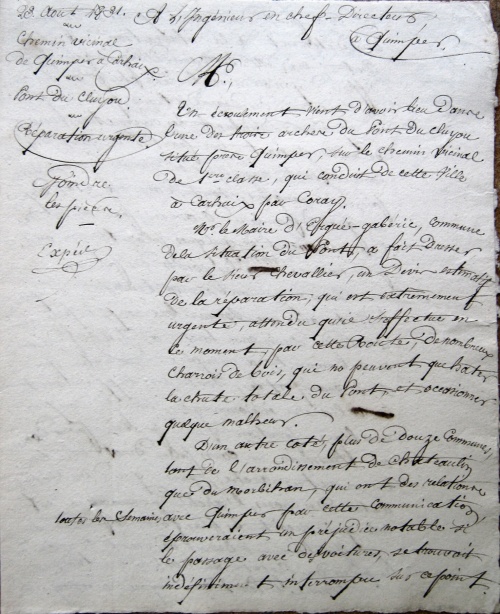 28 Août 1821.
Chemin vicinal
de Quimper à Carhaix.
Pont du Cluyou.
Réparation urgente
Joindre
les pièces,
Expéd
A l'Ingénieur en chef-Directeur
à Quimper,
Mr,
Un écroulement vient d'avoir lieu dans
l'une des trois arches du Pont du Cluyou
situé près Quimper, sur le chemin vicinal
de 1ere classe, qui conduit de cette Ville
à Carhaix par Coray.
Mr le Maire d'Ergué-gabéric, commune
de la situation du Pont, a fait dresser
par le sieur Chevallier, un Devis estimatif
de la réparation, qui est extrêmement
urgente, attendu qu'il s'effectue en
ce moment, par cette Route, de nombreux
charrois de bois, qui ne peuvent que hâter
la chute totale du Pont, et occasionner
quelque malheur.
D'un autre coté, plus de douze Communes,
tant de l'arrondissement de Chateaulin
que du Morbihan, qui ont des relations
toutes les Semaines, avec Quimper par cette communication,
éprouveraient un préjudice notable si
le passage avec des voitures, se trouvait
indéfiniment interrompu sur ce point.